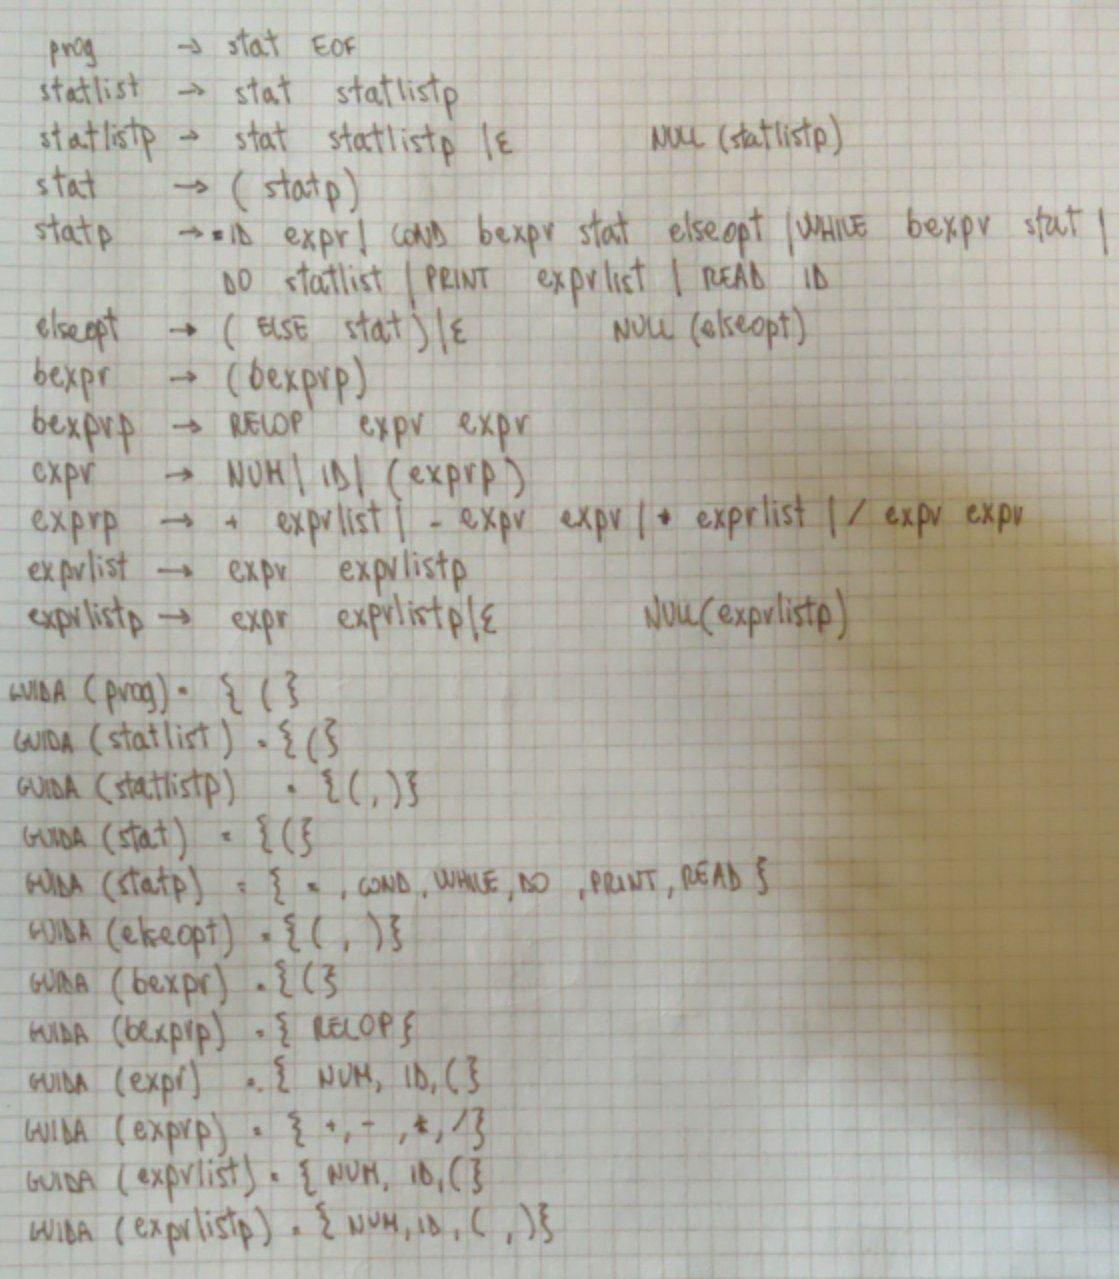 prog → stat EOF
statlist → stat statlistp
statlistp → stat statlistp | ε NULL (statlistp)
stat → ( statp )
statp → = ID expr | COND bexpr stat elseopt | WHILE bexpr stat |
DO statlist | PRINT exprlist | READ ID
elseopt → ( ELSE stat ) | ε NULL (elseopt)
bexpr → (bexprp)
bexprp → RELOP expr expr
expr → NUM | ID | (exprp)
exprp → + exprlist | - expr expr | * exprlist | / expr expr
exprlist → expr exprlistp
exprlistp → expr exprlistp | ε NULL (exprlistp)
GUIDA (prog) = { ( }
GUIDA (statlist) = { ( }
GUIDA (statlistp) = { ( , ) }
GUIDA (stat) = { ( }
GUIDA (statp) = { = , COND , WHILE , DO , PRINT , READ }
GUIDA (elseopt) = { ( , ) }
GUIDA (bexpr) = { ( }
GUIDA (bexprp) = { RELOP }
GUIDA (expr) = { NUM, ID, ( }
GUIDA (exprp) = { +, - , *, / }
GUIDA (exprlist) = { NUM, ID, ( }
GUIDA (exprlistp) = { NUM, ID, ( , ) }